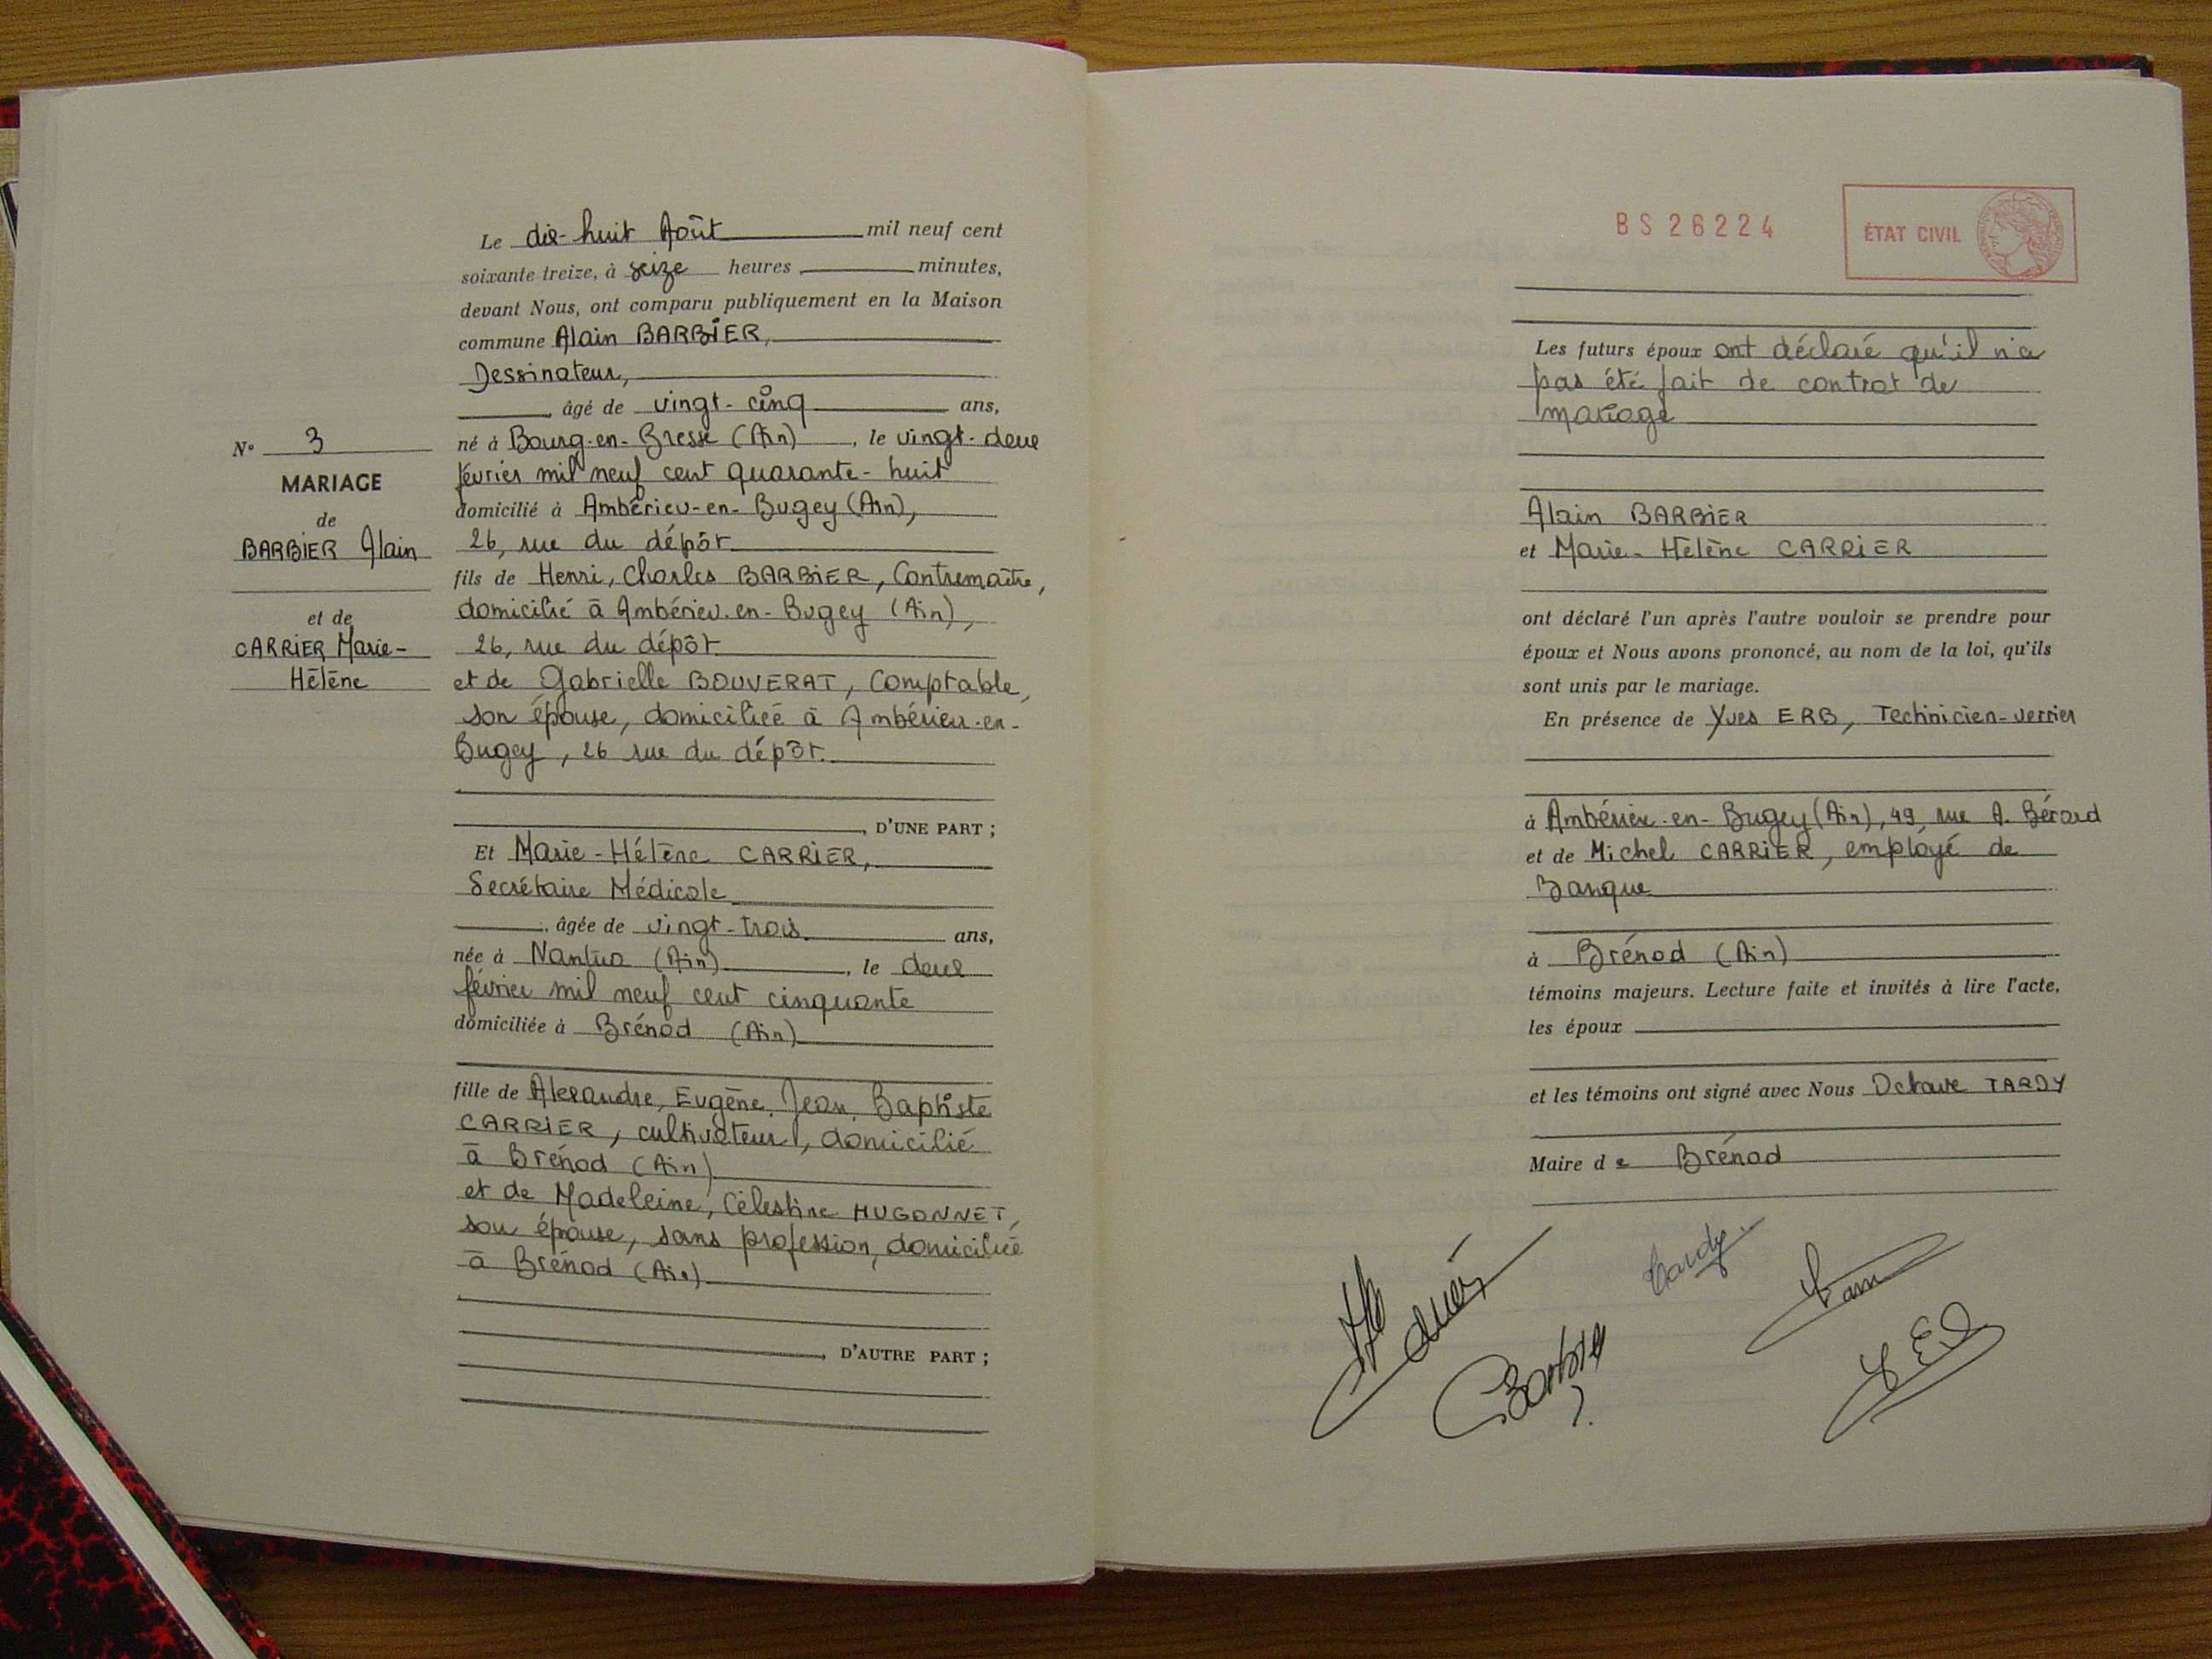 Le dix-huit Août mil neuf cent
soixante treize, à seize heures minutes,
devant Nous, ont comparu publiquement en la Maison
commune Alain BARBIER,
Dessinateur,
âgé de vingt-cinq ans,
né à Bourg-en-Bresse (Ain), le vingt-deux
février mil neuf cent quarante-huit
domicilié à Ambérieu-en-Bugey (Ain),
26, rue du dépôt
fils de Henri, Charles BARBIER, Contremaître,
domicilié à Ambérieu-en-Bugey (Ain),
26, rue du dépôt
et de Gabrielle BOUVERAT, Comptable,
son épouse, domiciliée à Ambérieu-en-
Bugey, 26 rue du dépôt.
D'UNE PART ;
Et Marie-Hélène CARRIER,
Secrétaire Médicale
âgée de vingt-trois ans,
née à Nantua (Ain), le deux
février mil neuf cent cinquante
domiciliée à Brénod (Ain)
fille de Alexandre, Eugène, Jean, Baptiste
CARRIER, cultivateur, domicilié
à Brénod (Ain)
et de Madeleine, Célestine HUGONNET,
son épouse, sans profession, domiciliée
à Brénod (Ain)
D'AUTRE PART ;
N° 3
MARIAGE
de
BARBIER Alain
et de
CARRIER Marie-
Hélène
BS 26224
ÉTAT CIVIL
Les futurs époux ont déclaré qu'il n'a
pas été fait de contrat de
mariage
Alain BARBIER
et Marie-Hélène CARRIER
ont déclaré l'un après l'autre vouloir se prendre pour
époux et Nous avons prononcé, au nom de la loi, qu'ils
sont unis par le mariage.
En présence de Yves ERB, Technicien-verrier
à Ambérieu-en-Bugey (Ain), 49, rue A. Bérard
et de Michel CARRIER, employé de
Banque
à Brénod (Ain)
témoins majeurs. Lecture faite et invités à lire l'acte,
les époux
et les témoins ont signé avec Nous Octave TARDY
Maire de Brénod
Tardy